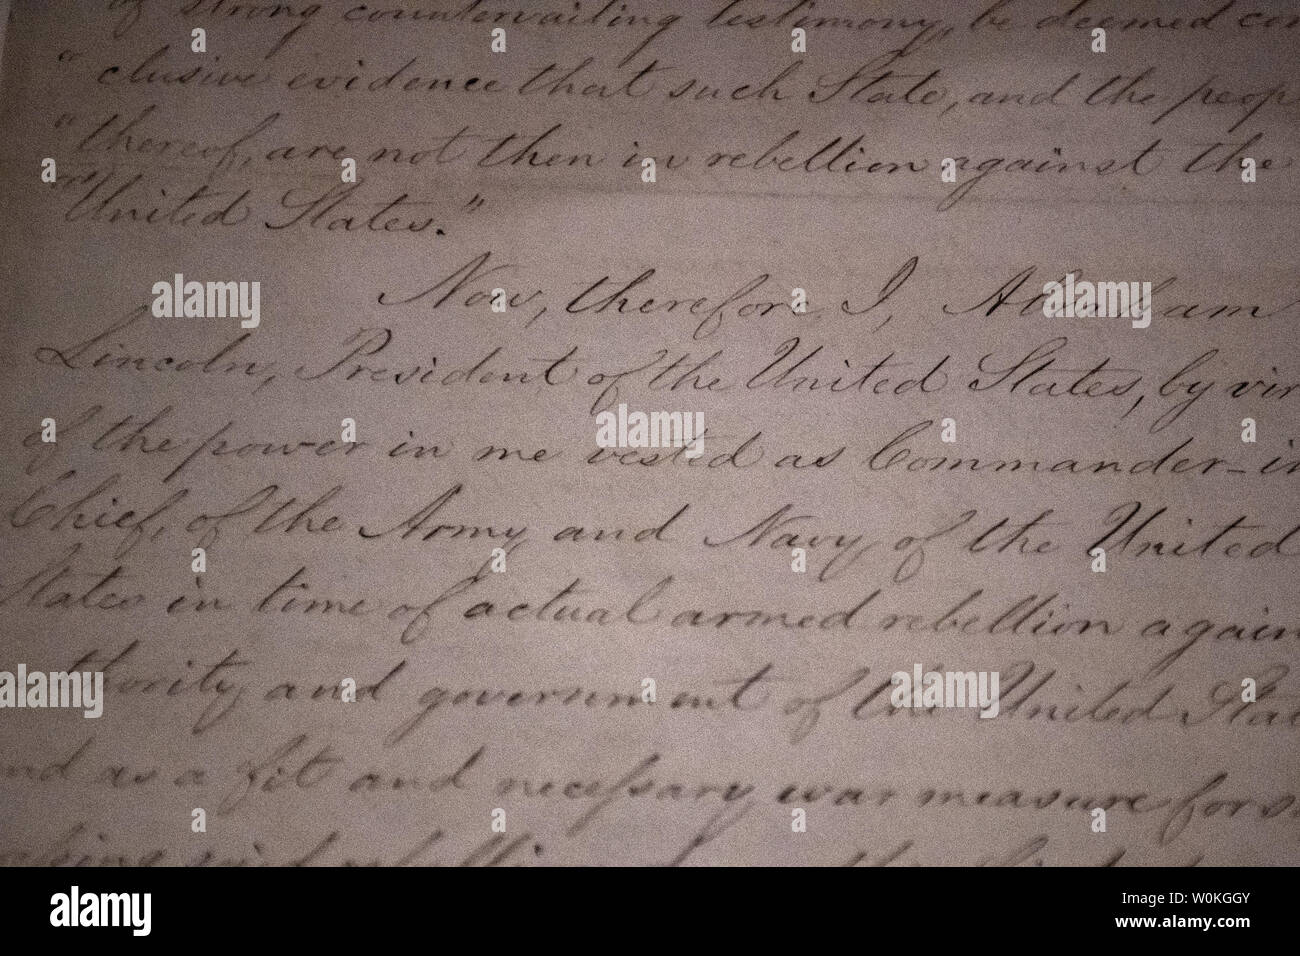 of strong countervailing testimony, be deemed con
" clusive evidence that such State, and the peop
" thereof, are not then in rebellion against the
" United States."
Now, therefore I, Abraham
Lincoln, President of the United States, by vir
of the power in me vested as Commander-in
Chief, of the Army and Navy, of the United
States in time of actual armed rebellion again
thority and government of the United Stat
nd as a fit and necessary war measure for su
alamy
alamy
Image ID: W0KGGY
www.alamy.com